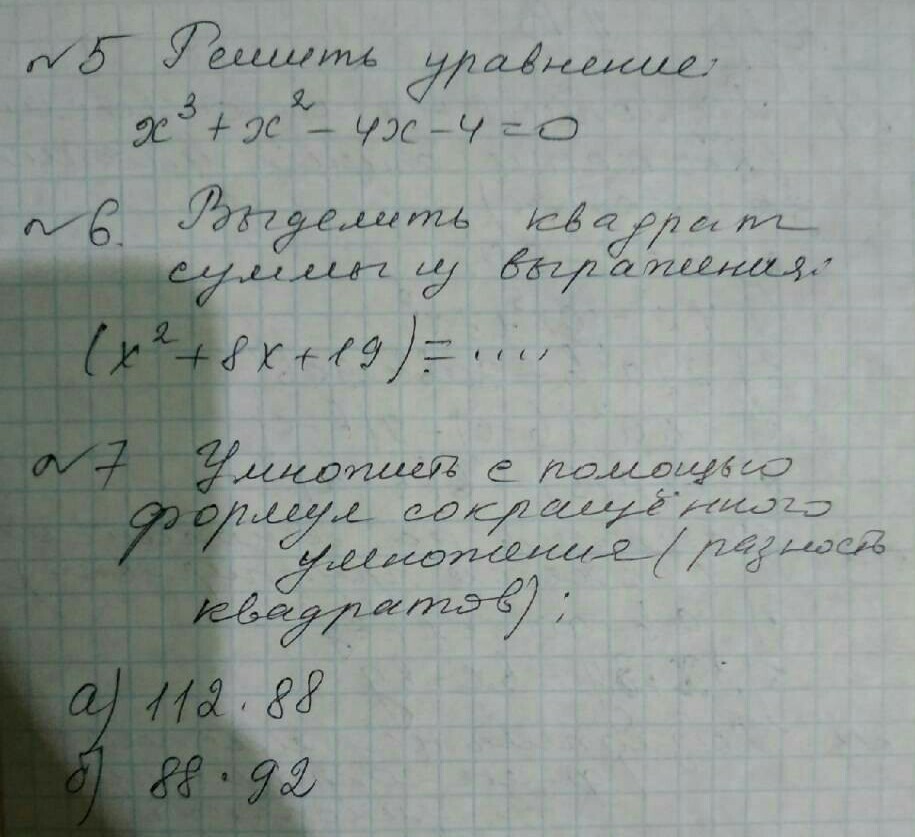 №5 Решить уравнение:
x³ + x² - 4x - 4 = 0
№6. Выделить квадрат
суммы из выражения:
(x² + 8x + 19) = .....
№7 Умножить с помощью
формул сокращённого
умножения (разность
квадратов);
а) 112 · 88
б) 88 · 92